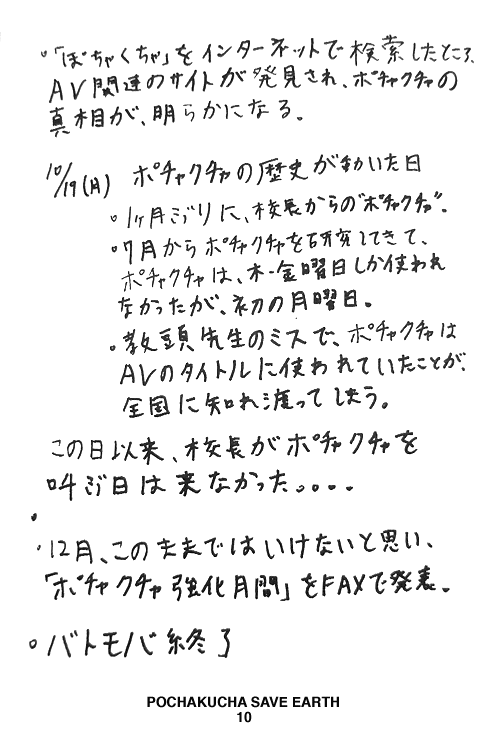 。「ぽちゃくちゃ」をインターネットで検索したところ、
AV関連のサイトが発見され、ポチャクチャの
真相が、明らかになる。
10/19(月) ポチャクチャの歴史が動いた日
。1ヶ月ぶりに、校長からの"ポチャクチャ"。
。7月からポチャクチャを研究してきて、
ポチャクチャは、木・金曜日しか使われ
なかったが、初の月曜日。
。教頭先生のミスで、ポチャクチャは
AVのタイトルに使われていたことが、
全国に知れ渡ってしまう。
この日以来、校長がポチャクチャを
叫ぶ日は来なかった。。。。
・12月、このままではいけないと思い、
「ポチャクチャ強化月間」をFAXで発表。
。バトモバ終了
POCHAKUCHA SAVE EARTH
10